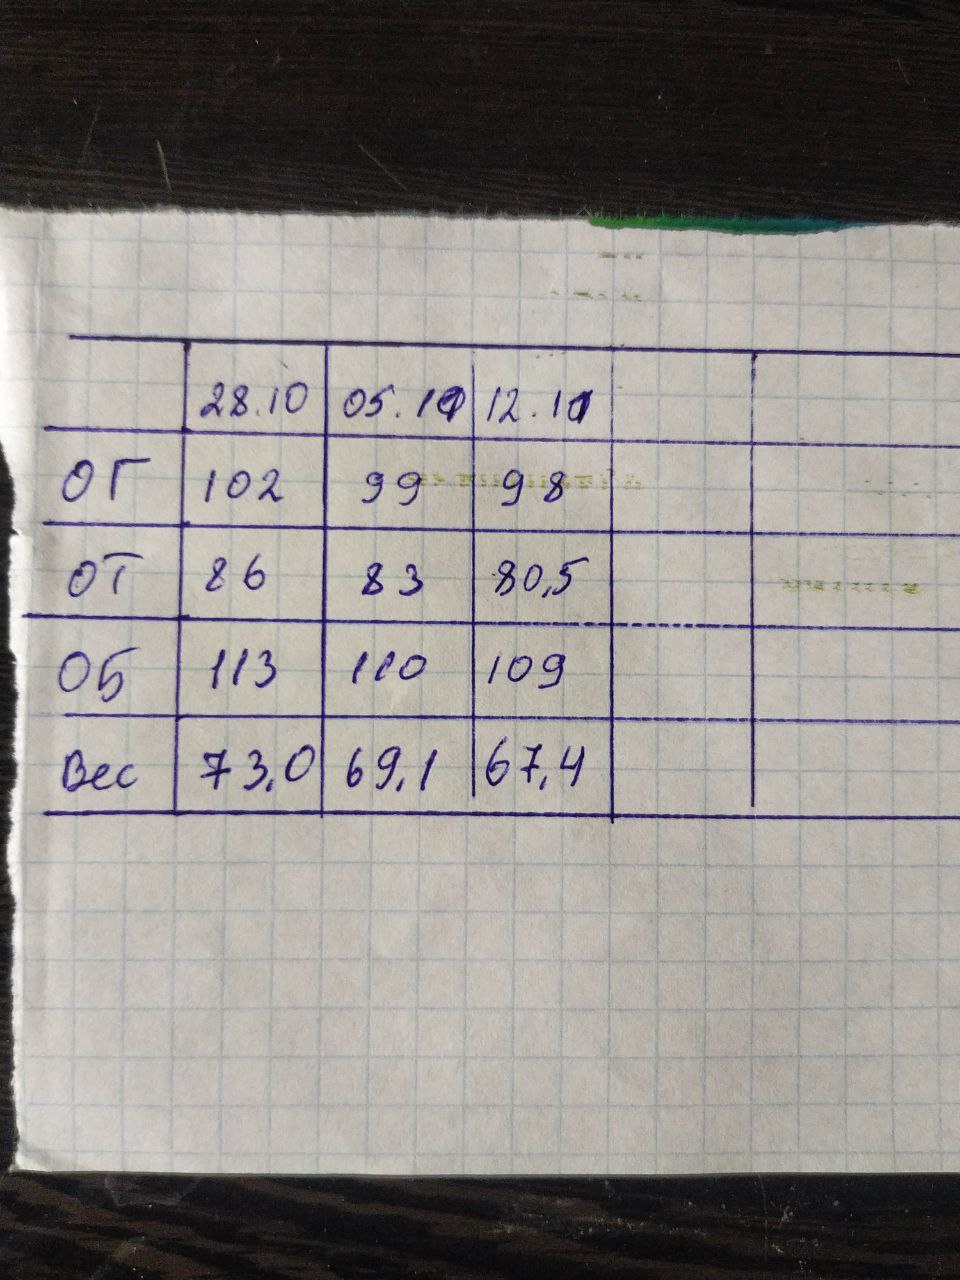 28.10 05.11 12.11
ОГ 102 99 98
ОТ 86 83 80,5
ОБ 113 110 109
Вес 73,0 69,1 67,4